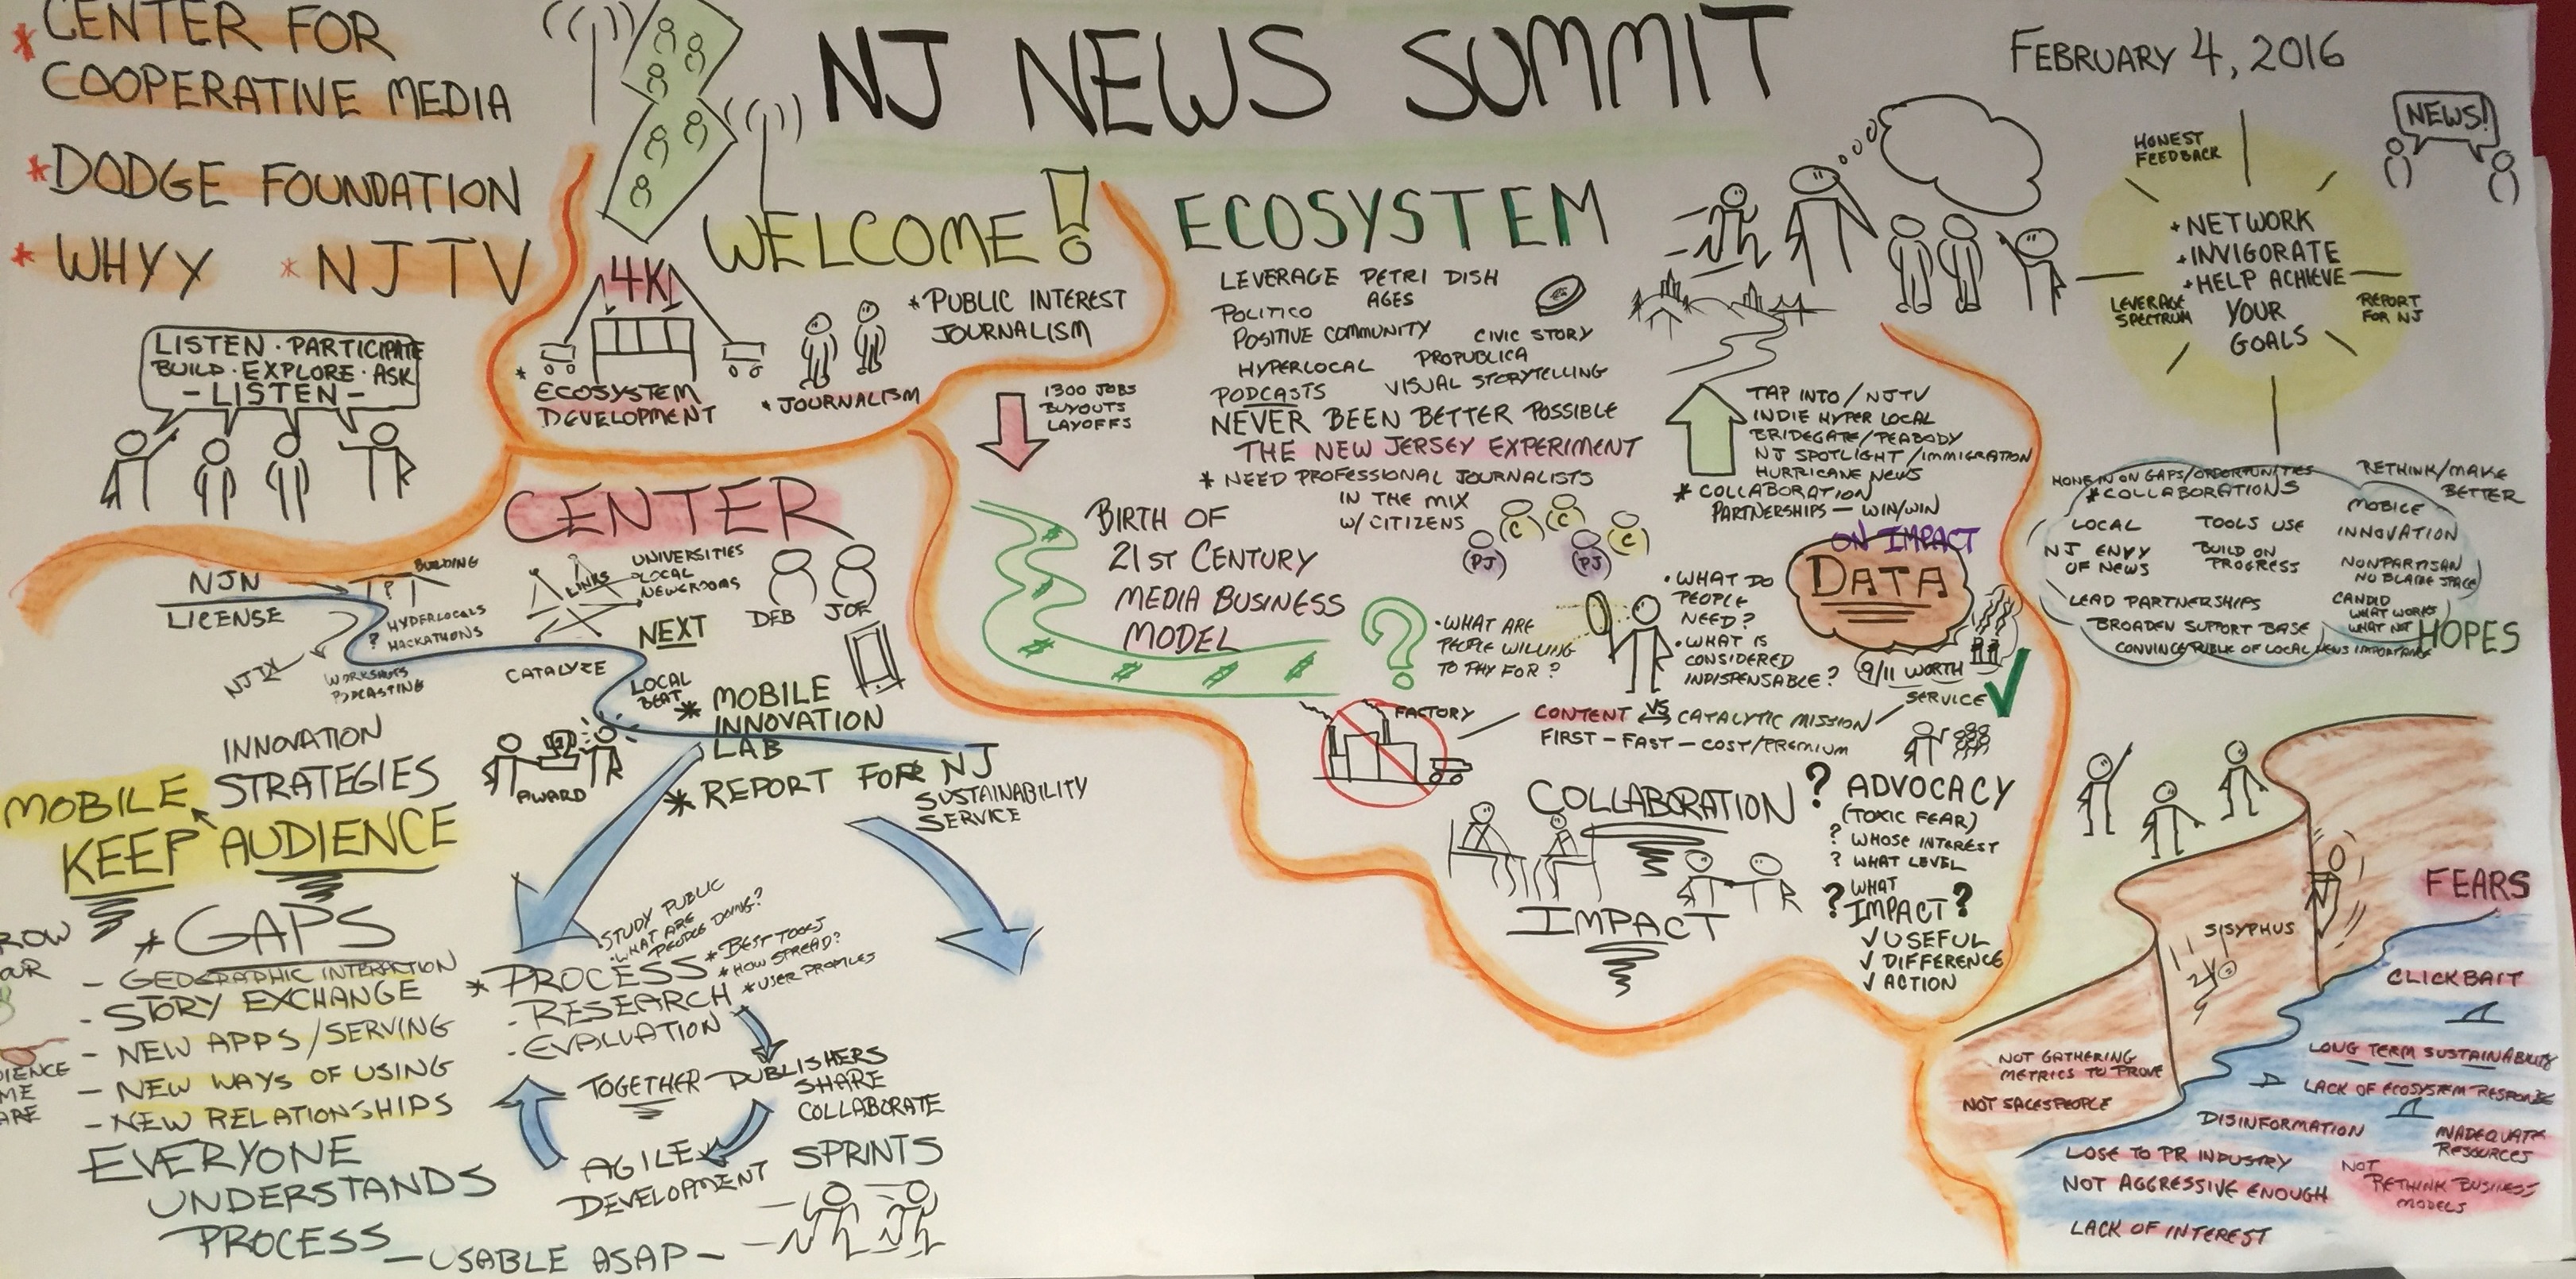 * CENTER FOR
COOPERATIVE MEDIA
* DODGE FOUNDATION
* WHYY * NJTV
LISTEN · PARTICIPATE
BUILD · EXPLORE · ASK
- LISTEN -
NJ NEWS SUMMIT
FEBRUARY 4, 2016
WELCOME!
4K
* ECOSYSTEM
DEVELOPMENT
* JOURNALISM
* PUBLIC INTEREST
JOURNALISM
ECOSYSTEM
LEVERAGE PETRI DISH
AGES
POLITICO
POSITIVE COMMUNITY
CIVIC STORY
HYPERLOCAL
PROPUBLICA
PODCASTS
VISUAL STORYTELLING
NEVER BEEN BETTER POSSIBLE
THE NEW JERSEY EXPERIMENT
* NEED PROFESSIONAL JOURNALISTS
IN THE MIX
W/ CITIZENS
C C C
PJ PJ
1300 JOBS
BUYOUTS
LAYOFFS
BIRTH OF
21ST CENTURY
MEDIA BUSINESS
MODEL
$ $ $ $ $ $
?
· WHAT ARE
PEOPLE WILLING
TO PAY FOR?
· WHAT DO
PEOPLE
NEED?
· WHAT IS
CONSIDERED
INDISPENSABLE?
TAP INTO / NJTV
INDIE HYPER LOCAL
BRIDEGATE/PEABODY
NJ SPOTLIGHT / IMMIGRATION
HURRICANE NEWS
* COLLABORATION
PARTNERSHIPS - WIN/WIN
ON IMPACT
DATA
9/11 WORTH
SERVICE
FACTORY
CONTENT VS CATALYTIC MISSION
FIRST - FAST - COST/PREMIUM
COLLABORATION
IMPACT
? ADVOCACY
(TOXIC FEAR)
? WHOSE INTEREST
? WHAT LEVEL
? WHAT
IMPACT?
√ USEFUL
√ DIFFERENCE
√ ACTION
NEWS!
HONEST
FEEDBACK
· NETWORK
· INVIGORATE
· HELP ACHIEVE
YOUR
GOALS
LEVERAGE
SPECTRUM
REPORT
FOR NJ
HONE IN ON GAPS/OPPORTUNITIES
* COLLABORATIONS
RETHINK/MAKE
BETTER
LOCAL
TOOLS USE
MOBILE
INNOVATION
NJ ENVY
OF NEWS
BUILD ON
PROGRESS
NONPARTISAN
NO BLAME SPACE
LEAD PARTNERSHIPS
CANDID
WHAT WORKS
WHAT NOT
BROADEN SUPPORT BASE
CONVINCE PUBLIC OF LOCAL NEWS IMPORTANCE
HOPES
FEARS
SISYPHUS
CLICKBAIT
NOT GATHERING
METRICS TO PROVE
NOT SALESPEOPLE
LONG TERM SUSTAINABILITY
LACK OF ECOSYSTEM RESPONSE
DISINFORMATION
INADEQUATE
RESOURCES
LOSE TO PR INDUSTRY
NOT
RETHINK BUSINESS
MODELS
NOT AGGRESSIVE ENOUGH
LACK OF INTEREST
CENTER
NJN
LICENSE
?
BUILDING
? HYPERLOCALS
HACKATHONS
WORKSHOPS
PODCASTING
LINKS
UNIVERSITIES
LOCAL
NEWSROOMS
CATALYZE
DEB JOE
NEXT
LOCAL
BEAT
AWARD
* MOBILE
INNOVATION
LAB
* REPORT FOR NJ
SUSTAINABILITY
SERVICE
INNOVATION
STRATEGIES
MOBILE
KEEP AUDIENCE
* GAPS
- GEOGRAPHIC INTERACTION
- STORY EXCHANGE
- NEW APPS/SERVING
- NEW WAYS OF USING
- NEW RELATIONSHIPS
EVERYONE
UNDERSTANDS
PROCESS
- USABLE ASAP -
· STUDY PUBLIC
· WHAT ARE
PEOPLE DOING?
* PROCESS
- RESEARCH
- EVALUATION
* BEST TOOLS
* HOW SPREAD?
* USER PROFILES
TOGETHER
PUBLISHERS
SHARE
COLLABORATE
AGILE
DEVELOPMENT
SPRINTS